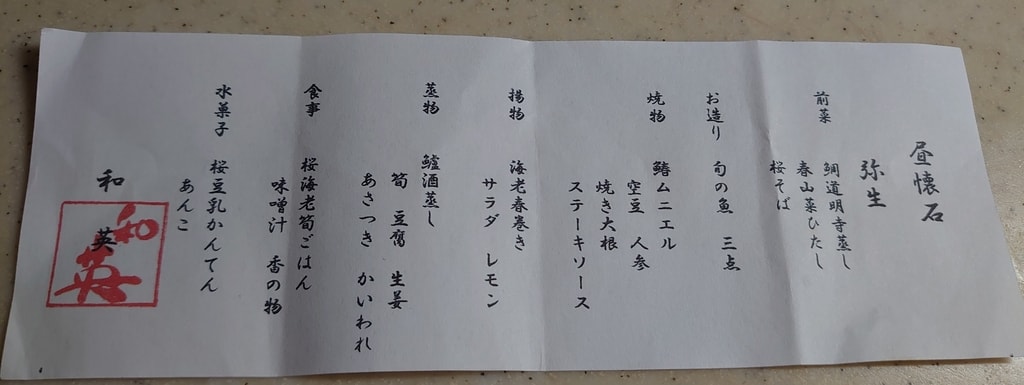 昼懐石
弥生
前菜　鯛道明寺蒸し
春山菜ひたし
桜そば
お造り　旬の魚　三点
焼物　鰆ムニエル
空豆　人参
焼き大根
ステーキソース
揚物　海老春巻き
サラダ　レモン
蒸物　鱸酒蒸し
筍　豆腐　生姜
あさつき　かいわれ
食事　桜海老筍ごはん
味噌汁　香の物
水菓子　桜豆乳かんてん
あんこ
和　英
和英